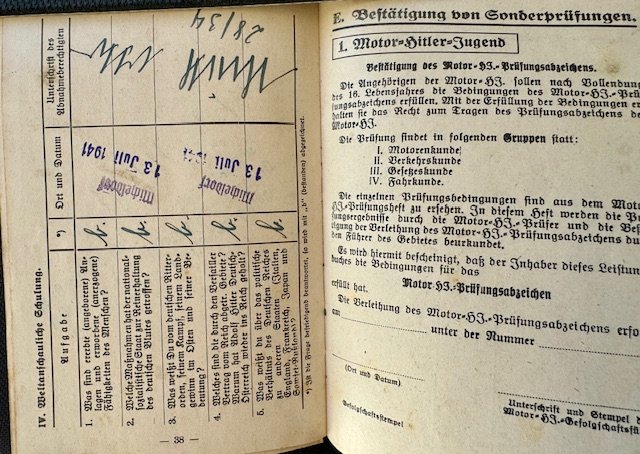 IV. Weltanschauliche Schulung.
Aufgabe
*)
Ort und Datum
Unterschrift des
Abnahmeberechtigten
1. Was sind ererbte (angeborene) An-
lagen und erworbene (anerzogene)
Fähigkeiten des Menschen?
2. Welche Maßnahmen hat der national-
sozialistische Staat zur Reinerhaltung
des deutschen Blutes getroffen?
3. Was weißt Du vom deutschen Ritter-
orden, seinem Kampf, seinem Land-
gewinn im Osten und seiner Be-
deutung?
4. Welches sind die durch den Versailler
Vertrag vom Reich abgetr. Gebiete?
Warum hat Adolf Hitler Deutsch-
Österreich wieder ins Reich geholt?
5. Was weißt du über das politische
Verhältnis des Deutschen Reiches
zu anderen Staaten (Italien,
England, Frankreich, Japan und
Sowjet-Rußland)?
b.
b.
b.
b.
b.
13. Juli 1941
13. Juli 1941
28/34
*) Ist die Frage befriedigend beantwortet, so wird mit „b“ (bestanden) abgezeichnet.
— 38 —
E. Bestätigung von Sonderprüfungen.
1. Motor-Hitler-Jugend
Bestätigung des Motor-HJ.-Prüfungsabzeichens.
Die Angehörigen der Motor-HJ. sollen nach Vollendung
des 16. Lebensjahres die Bedingungen des Motor-HJ.-Prü
fungsabzeichens erfüllen. Mit der Erfüllung der Bedingungen er
halten sie das Recht zum Tragen des Prüfungsabzeichens de
Motor-HJ.
Die Prüfung findet in folgenden Gruppen statt:
I. Motorenkunde
II. Verkehrskunde
III. Gesetzeskunde
IV. Fahrkunde.
Die einzelnen Prüfungsbedingungen sind aus dem Moto
HJ-Prüfungsheft zu ersehen. In diesem Heft werden die Pr
fungsergebnisse durch die Motor-HJ.-Prüfer und die Bes
tigung der Verleihung des Motor-HJ.-Prüfungsabzeichens du
den Führer des Gebietes beurkundet.
Es wird hiermit bescheinigt, daß der Inhaber dieses Leistun
buches die Bedingungen für das
Motor HJ.-Prüfungsabzeichen
erfüllt hat.
Die Verleihung des Motor-HJ.-Prüfungsabzeichens erfo
am unter der Nummer
(Ort und Datum)
Gefolgschaftsstempel
Unterschrift und Stempel d
Motor-HJ.-Gefolgschaftsfü